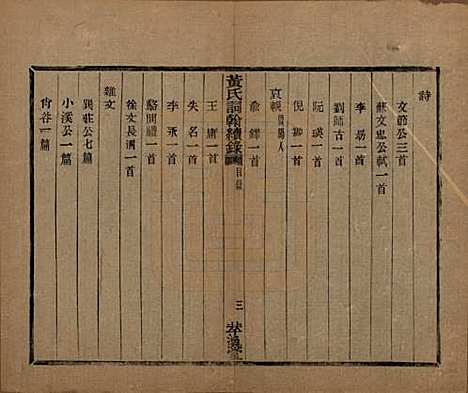 詩
文節公三首
蘇文忠公軾一首
李昜一首
劉師古一首
阮瑛一首
倪一首
哀輓
詹鐸一首
黃氏詞翰續錄
目錄
三
萃渙堂
王庸一首
失名一首
李永一首
駱問禮一首
徐文長渭一首
雜文
巽莊公七篇
小溪公一篇
肖谷一篇